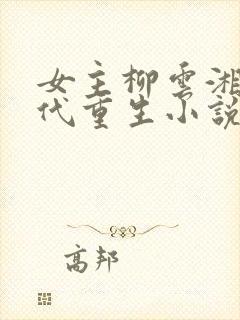 女主柳雲湘
代重生小說
高邦